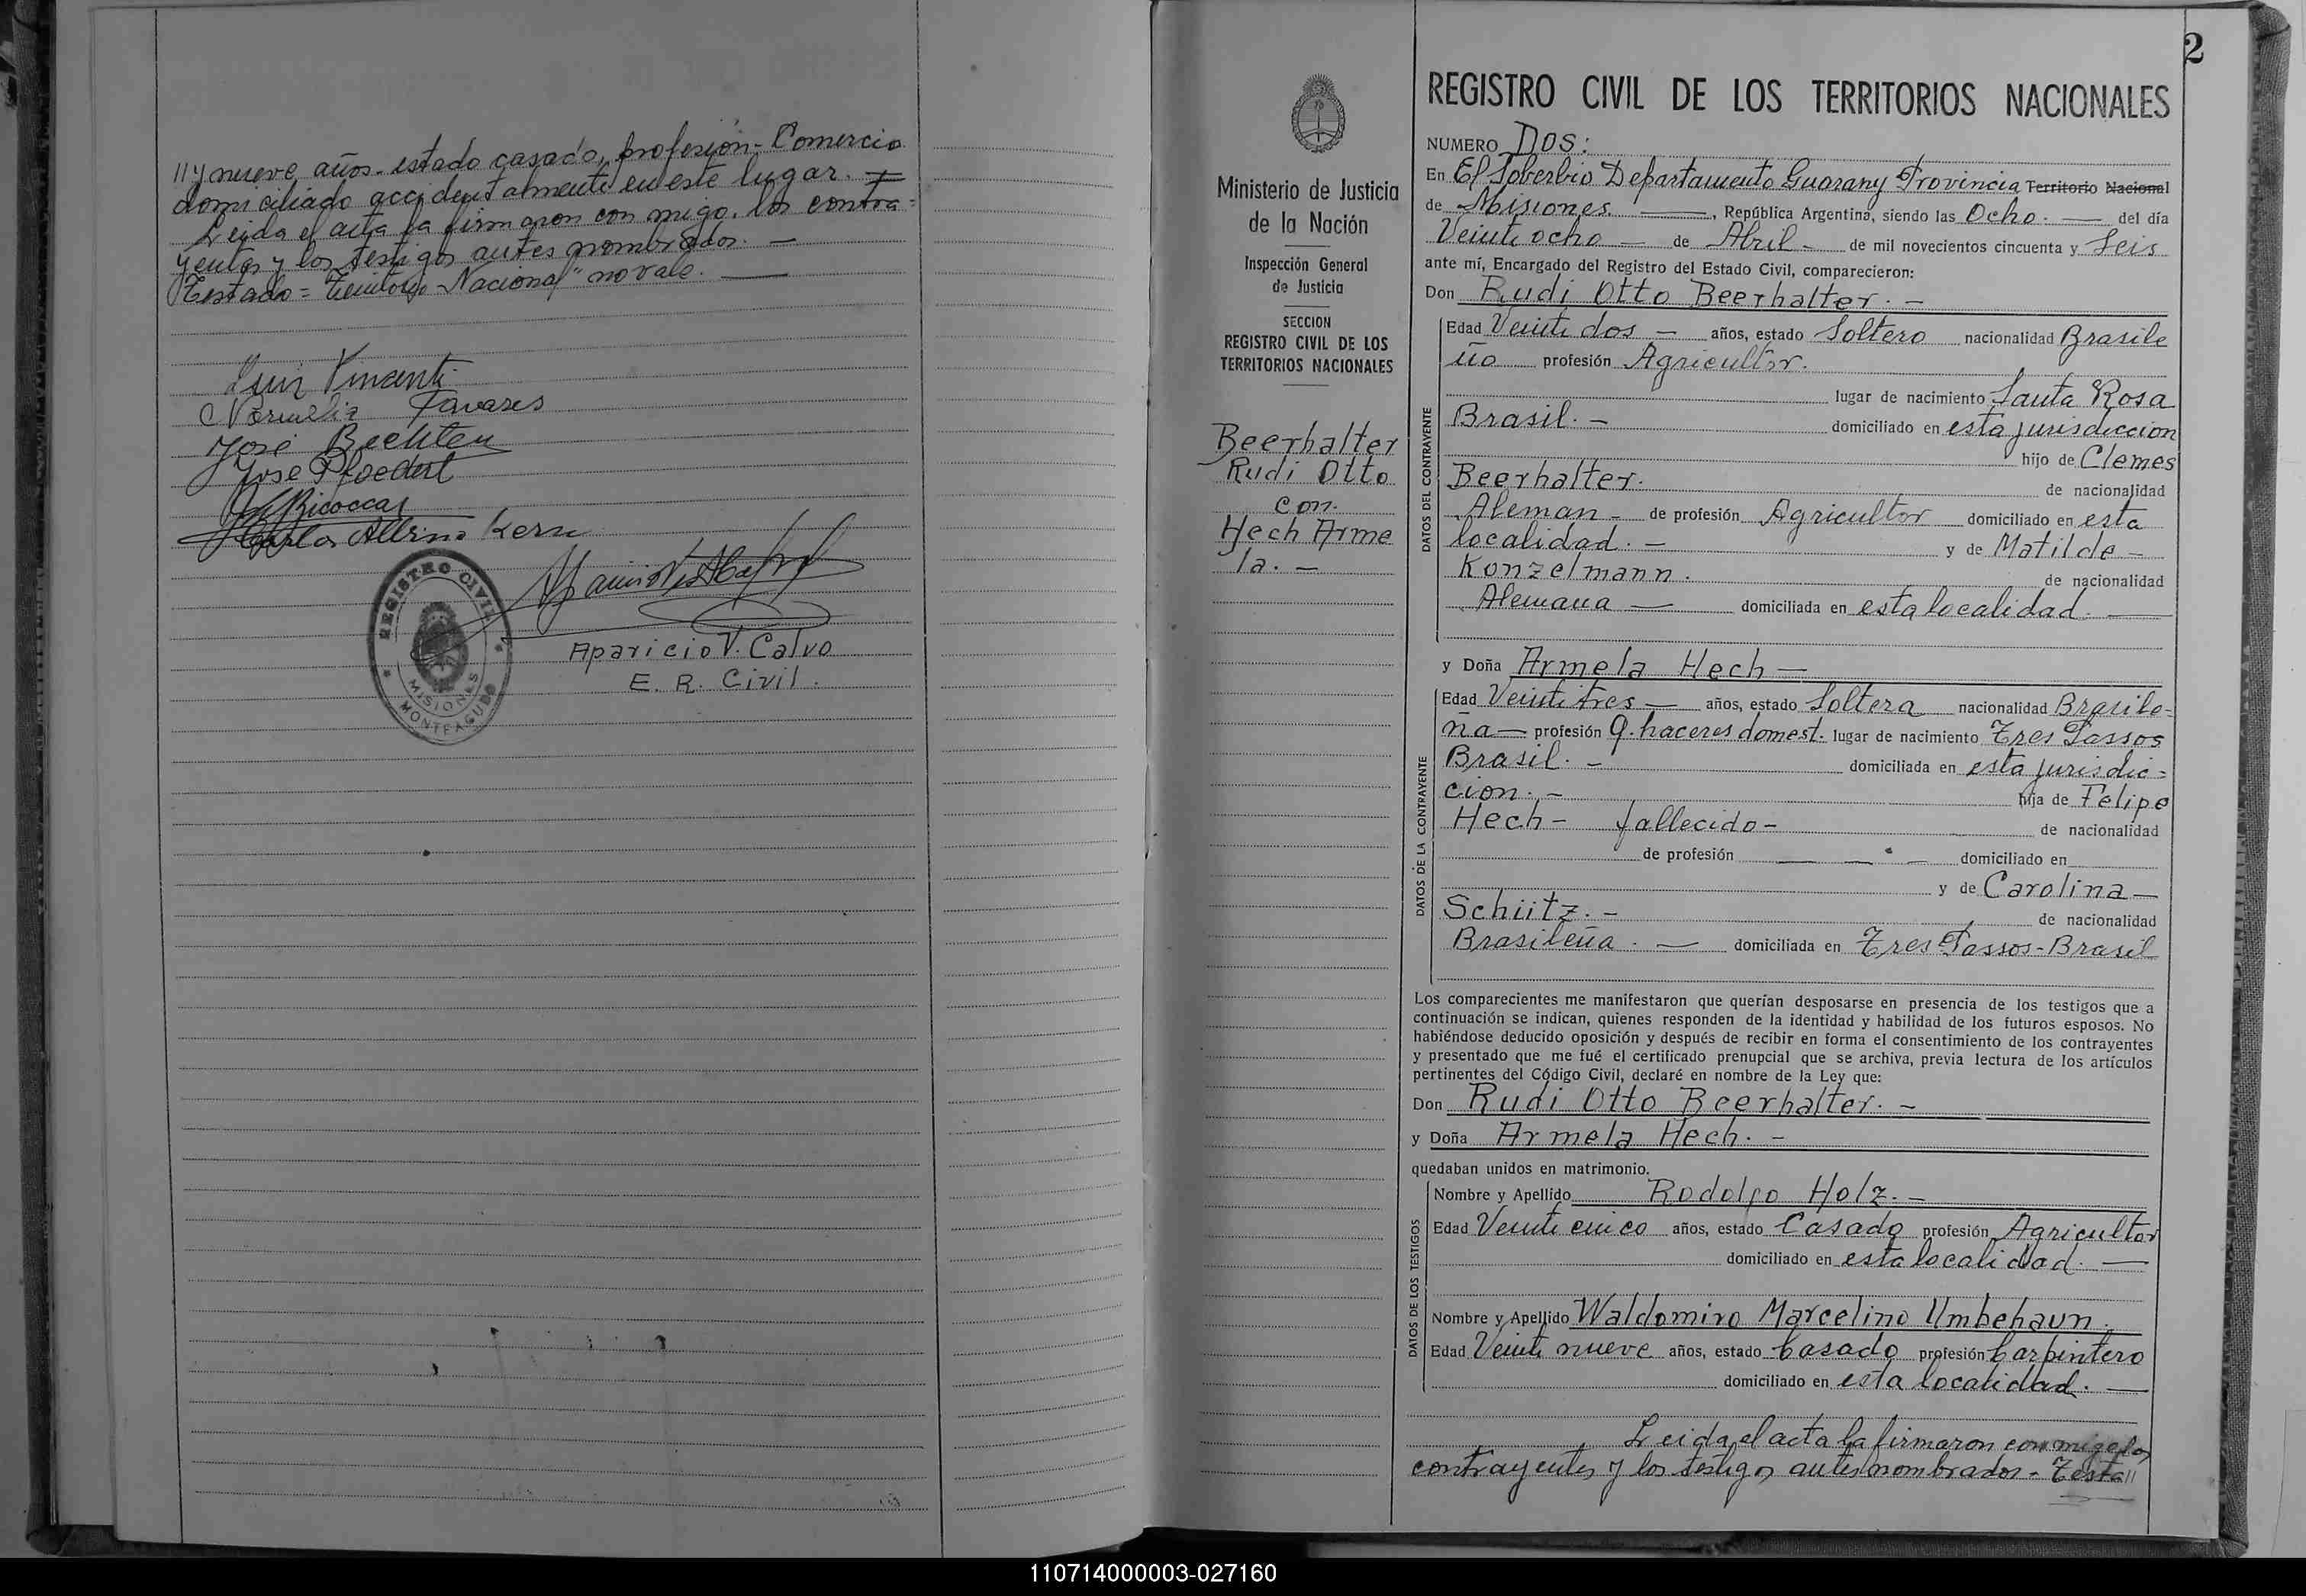 // y nueve años. estado casado, profesion- Comercio
domiciliado accidentalmente en este lugar. —
Leida el acta la firmaron con migo. los contra=
yentes y los testigos antes nombrados. —
Testado= "Territorio Nacional" no vale. —
Luis Vincenti
Tavares
José Bechten
Jose
Ricoccas
Carlos Albino Kern
REGISTRO CIVIL
MISIONES
MONTEAGUDO
Aparicio V. Calvo
E. R. Civil.
2
Ministerio de Justicia
de la Nación
Inspección General
de Justicia
SECCION
REGISTRO CIVIL DE LOS
TERRITORIOS NACIONALES
Beerhalter
Rudi Otto
con.
Hech Arme
la. —
REGISTRO CIVIL DE LOS TERRITORIOS NACIONALES
NUMERO DOS:
En El Soberbio Departamento Guarany Provincia Territorio Nacional
de Misiones. —, República Argentina, siendo las Ocho. — del día
Veinte ocho — de Abril — de mil novecientos cincuenta y Seis
ante mí, Encargado del Registro del Estado Civil, comparecieron:
Don Rudi Otto Beerhalter. —
DATOS DEL CONTRAYENTE
Edad Veinte dos — años, estado Soltero nacionalidad Brasile
ño profesión Agricultor.
lugar de nacimiento Santa Rosa
Brasil. — domiciliado en esta jurisdiccion
hijo de Clemes
Beerhalter. de nacionalidad
Aleman — de profesión Agricultor domiciliado en esta
localidad. — y de Matilde —
Konzelmann. de nacionalidad
Alemana — domiciliada en esta localidad. —
y Doña Armela Hech —
DATOS DE LA CONTRAYENTE
Edad Veinte tres — años, estado Soltera nacionalidad Brasile-
ña — profesión Q. haceres domest. lugar de nacimiento Tres Passos
Brasil. — domiciliada en esta jurisdic=
cion. — hija de Felipe
Hech — fallecido — de nacionalidad
de profesión — — domiciliado en
y de Carolina —
Schütz. — de nacionalidad
Brasileña. — domiciliada en Tres Passos-Brasil
Los comparecientes me manifestaron que querían desposarse en presencia de los testigos que a
continuación se indican, quienes responden de la identidad y habilidad de los futuros esposos. No
habiéndose deducido oposición y después de recibir en forma el consentimiento de los contrayentes
y presentado que me fué el certificado prenupcial que se archiva, previa lectura de los artículos
pertinentes del Código Civil, declaré en nombre de la Ley que:
Don Rudi Otto Beerhalter. —
y Doña Armela Hech. —
quedaban unidos en matrimonio.
DATOS DE LOS TESTIGOS
Nombre y Apellido Rodolfo Holz. —
Edad Veinte cinco años, estado Casado profesión Agricultor
domiciliado en esta localidad. —
Nombre y Apellido Waldomiro Marcelino Umbehaun.
Edad Veinte nueve años, estado Casado profesión Carpintero
domiciliado en esta localidad. —
Leida el acta la firmaron con migo los
contrayentes y los testigos antes nombrados - Testa//
110714000003-027160